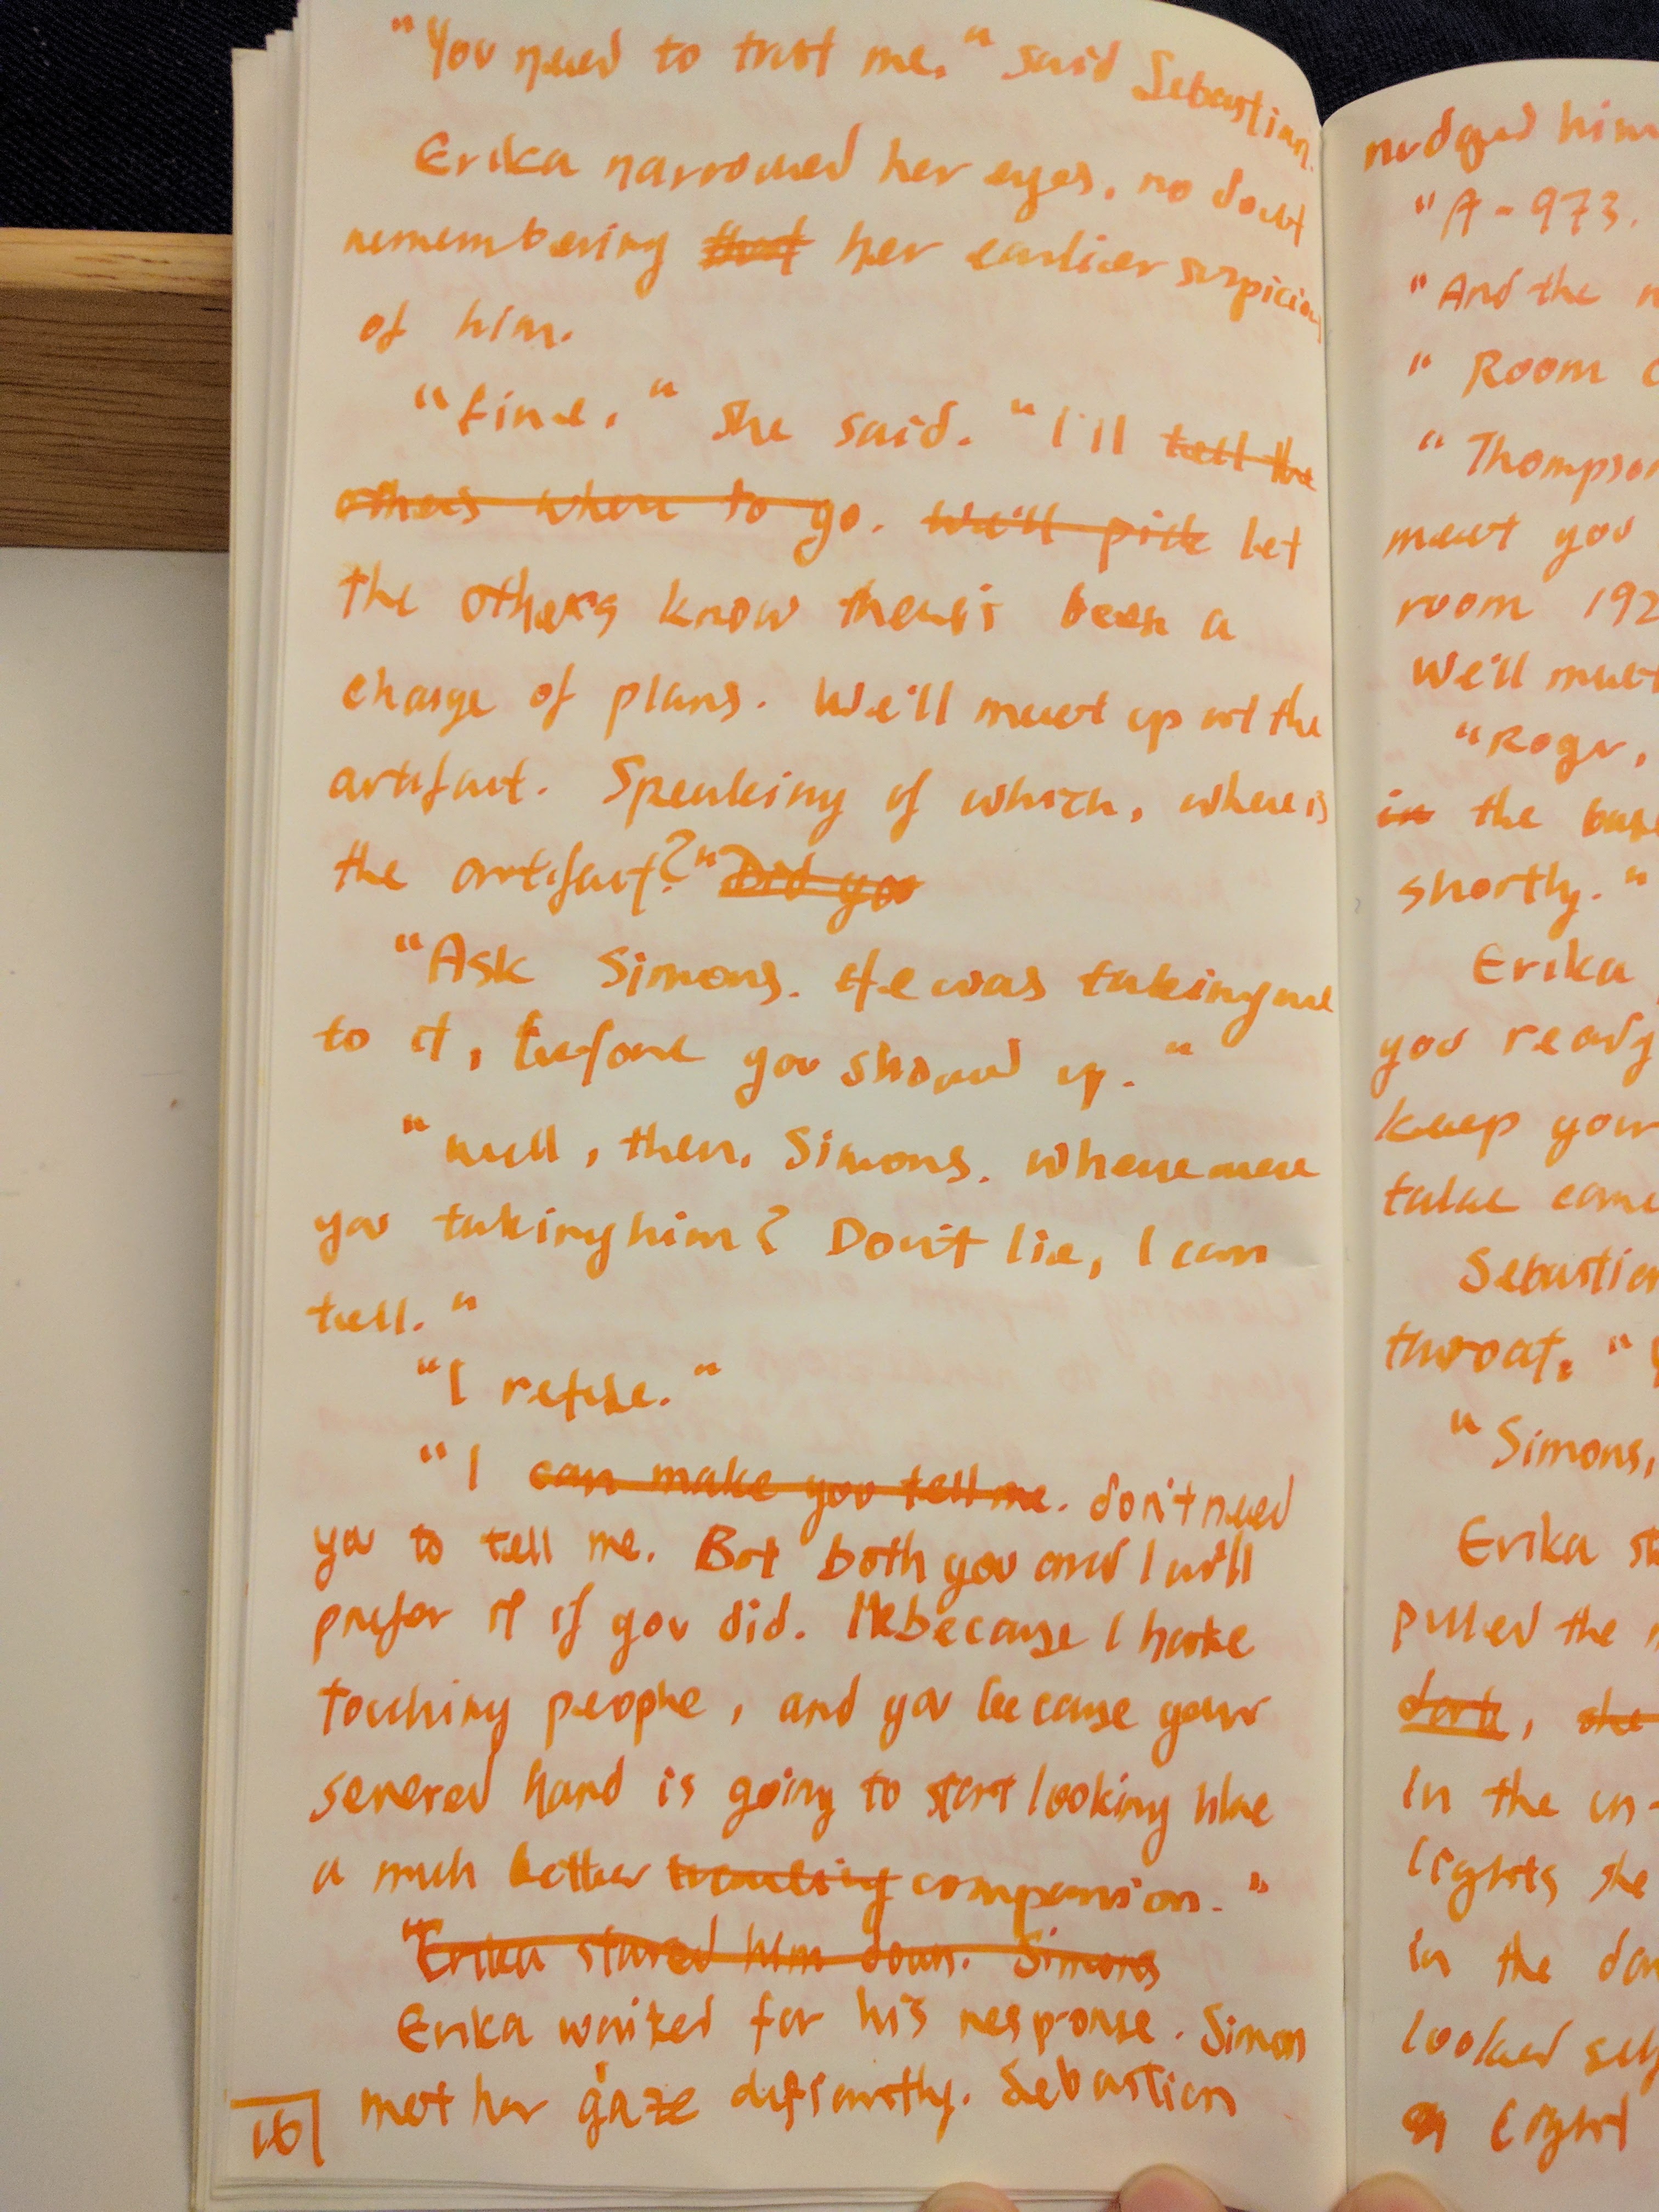 "You need to trust me." said Sebastian.
Erika narrowed her eyes, no doubt
remembering that her earlier suspicions
of him.
"Fine," she said. "I'll tell the
others where to go. We'll pick let
the others know there's been a
change of plans. We'll meet up at the
artifact. Speaking of which, where is
the artifact?" Did you
"Ask Simons. He was taking me
to it, before you showed up."
"Well, then, Simons. Where were
you taking him? Don't lie, I can
tell."
"I refuse."
"I can make you tell me. don't need
you to tell me. But both you and I will
prefer it if you did. Me because I hate
touching people, and you because your
severed hand is going to start looking like
a much better companion."
"Erika stared him down. Simons
Erika waited for his response. Simon
met her gaze defiantly. Sebastian
16
nudged him
"A-973.
"And the
"Room
"Thompson
meet you
room 192
We'll meet
"Roger,
in the base
shortly."
Erika
you ready
keep your
take
Sebastian
throat. "
"Simons,
Erika
pulled the
dark, she
In the un-
lights she
in the
looked
a light